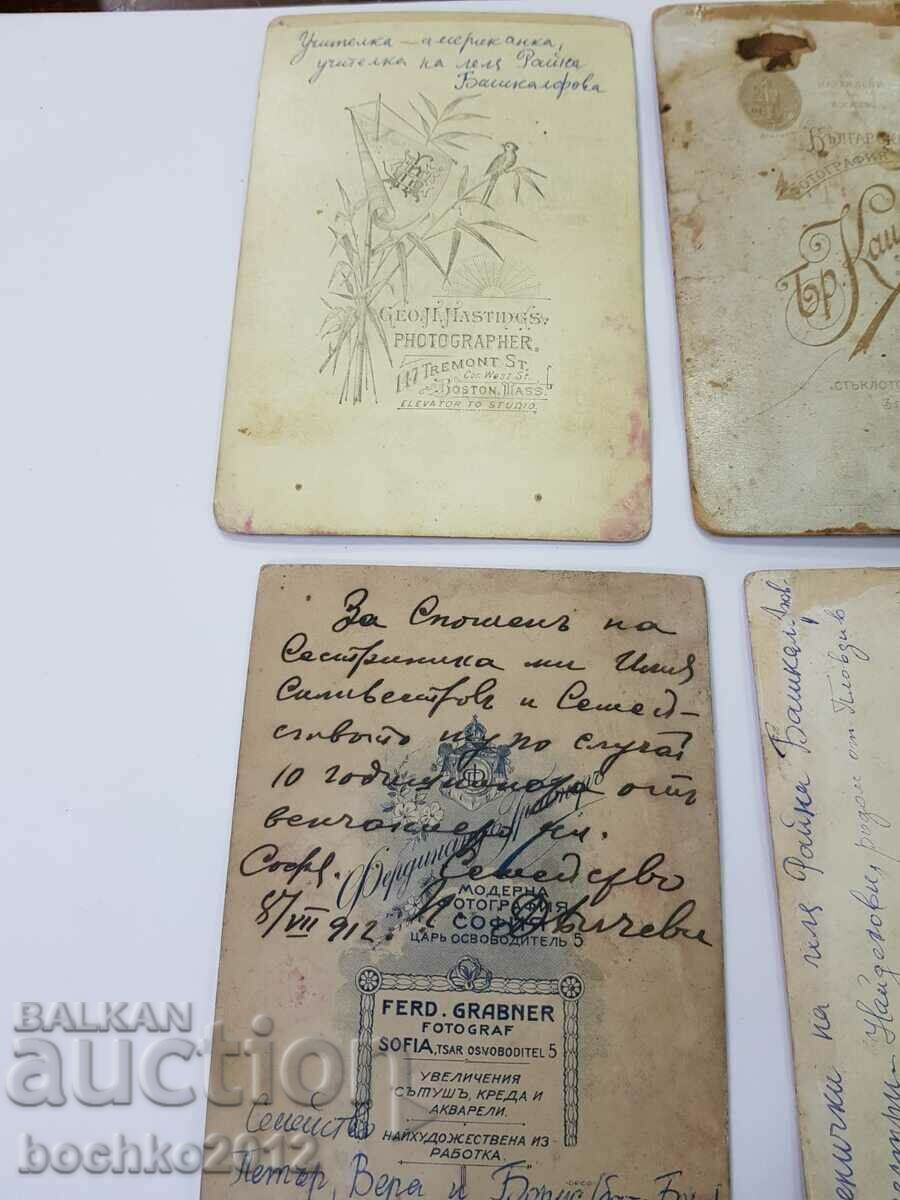 Учителка – американка,
учителка на леля Райна
Башкалфова
GEO. H. HASTINGS.
PHOTOGRAPHER.
147 TREMONT ST.
Cor. West St.
BOSTON, MASS.
ELEVATOR TO STUDIO.
БЪЛГАРСКА
ФОТОГРАФИЯ
БР.
За Споменъ на
Сестриника ми Илия
Силвестровъ и Семей-
ството му по случай
10 годишнината отъ
венчанието им.
Соф. Семейство
8/VII 912.
Фердинандъ Грабнеръ
МОДЕРНА
ФОТОГРАФИЯ
СОФИЯ
ЦАРЬ ОСВОБОДИТЕЛЬ 5
FERD. GRABNER
FOTOGRAF
SOFIA, TSAR OSVOBODITEL 5
УВЕЛИЧЕНИЯ
СЪ ТУШЪ, КРЕДА И
АКВАРЕЛИ.
НАЙХУДОЖЕСТВЕНА ИЗ-
РАБОТКА.
Семейство
Петър, Вера и
на леля Райна Башкал
родом от Пловдив
BALKAN
auction
bochko2012